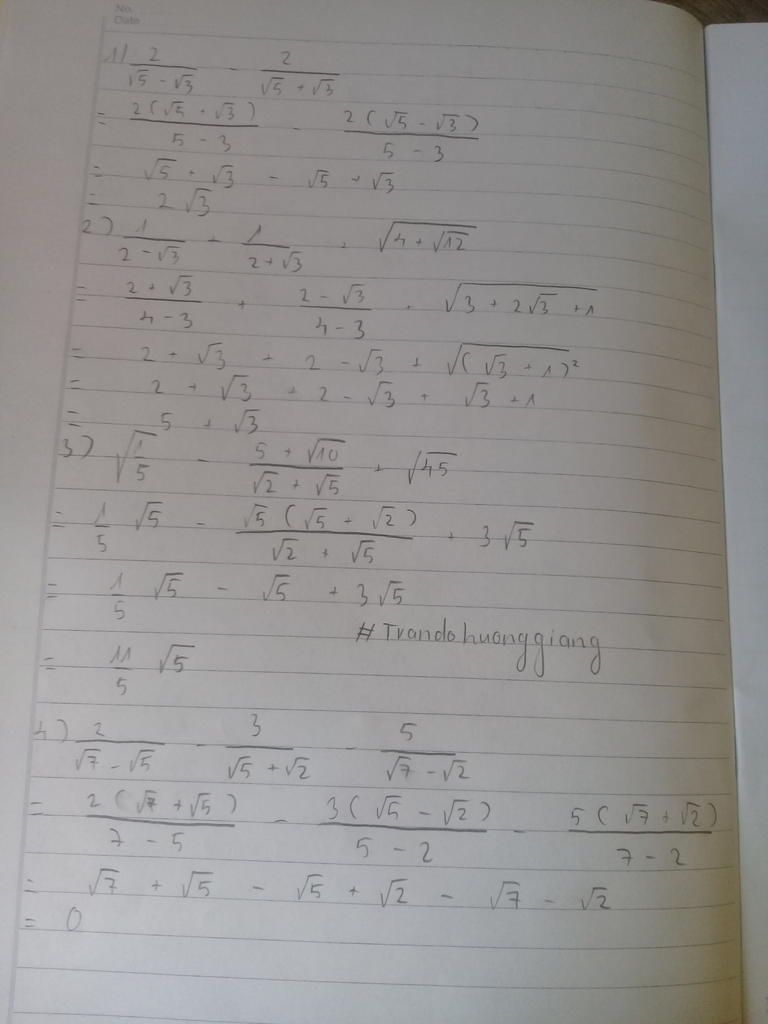 No.
Date
1) 2/(√5 - √3) - 2/(√5 + √3)
= 2(√5 + √3)/(5 - 3) - 2(√5 - √3)/(5 - 3)
= √5 + √3 - √5 + √3
= 2√3
2) 1/(2 - √3) + 1/(2 + √3) + √(4 + √12)
= (2 + √3)/(4 - 3) + (2 - √3)/(4 - 3) + √(3 + 2√3 + 1)
= 2 + √3 + 2 - √3 + √((√3 + 1)²)
= 2 + √3 + 2 - √3 + √3 + 1
= 5 + √3
3) √(1/5) - (5 + √10)/(√2 + √5) + √45
= 1/5 √5 - √5(√5 + √2)/(√2 + √5) + 3√5
= 1/5 √5 - √5 + 3√5
# Trandohuonggiang
= 11/5 √5
4) 2/(√7 - √5) - 3/(√5 + √2) - 5/(√7 - √2)
= 2(√7 + √5)/(7 - 5) - 3(√5 - √2)/(5 - 2) - 5(√7 + √2)/(7 - 2)
= √7 + √5 - √5 + √2 - √7 - √2
= 0